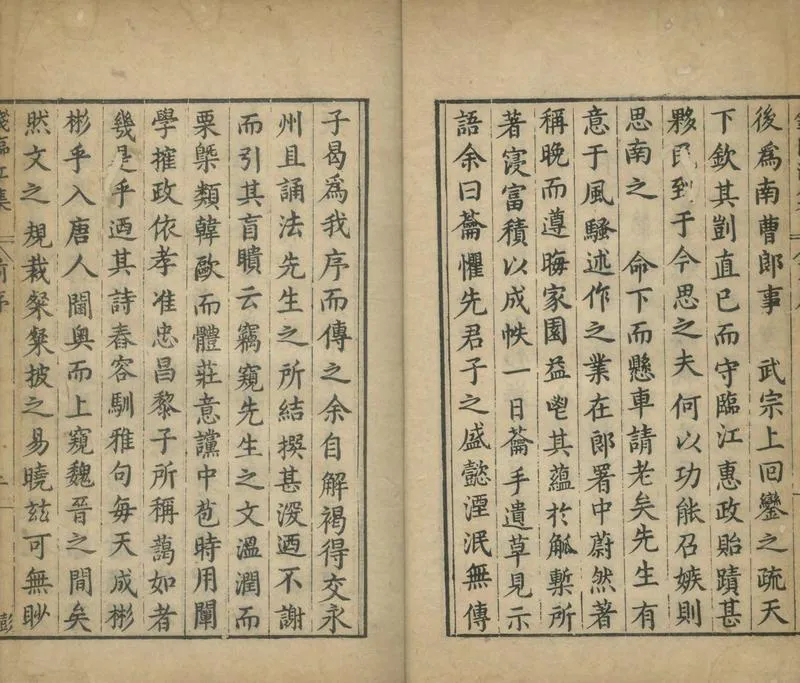 後爲南曹郎事　武宗上回鑾之疏天
下欽其剴直已而守臨江惠政貽蹟甚
夥民到于今思之夫何以功能召嫉則
思南之　命下而懸車請老矣先生有
意于風騷述作之業在郎署中蔚然著
稱晚而遵晦家園益鬯其蘊於觚槧所
著寖富積以成帙一日蕃手遺草見示
語余曰蕃懼先君子之盛懿湮泯無傳
子曷爲我序而傳之余自解褐得交永
州且誦法先生之所結撰甚深迺不謝
而引其盲瞶云竊窺先生之文溫潤而
栗槩類韓歐而體莊意讜中苞時用闡
學摧政依孝准忠昌黎子所稱藹如者
幾是乎迺其詩舂容馴雅句每天成彬
彬乎入唐人閫奥而上窺魏晉之間矣
然文之　規裁粲粲披之易曉玆可無眇